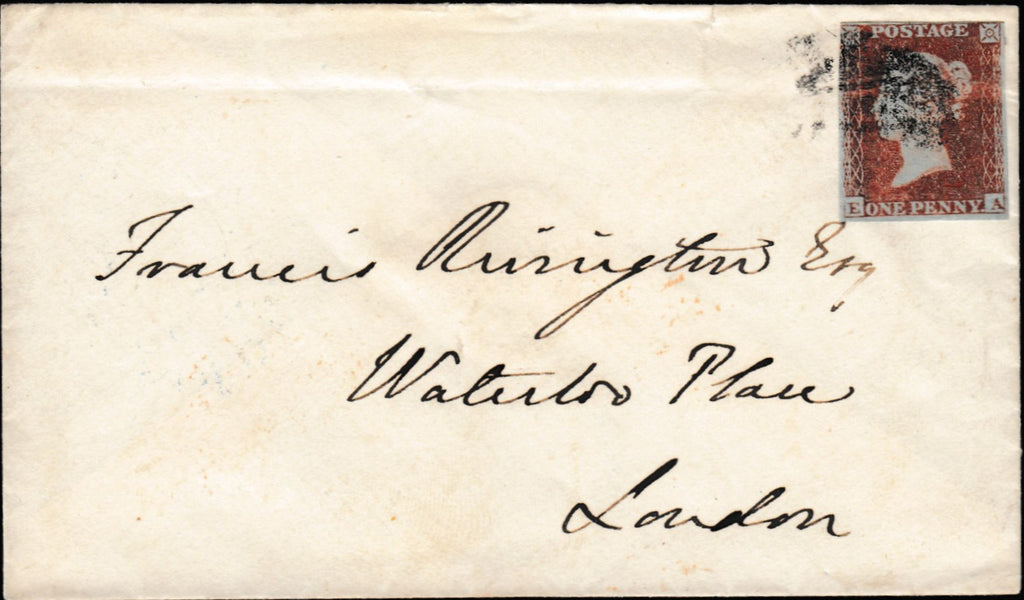 POSTAGE
E ONE PENNY. A
Francis Rivington Esq
Waterloo Place
London